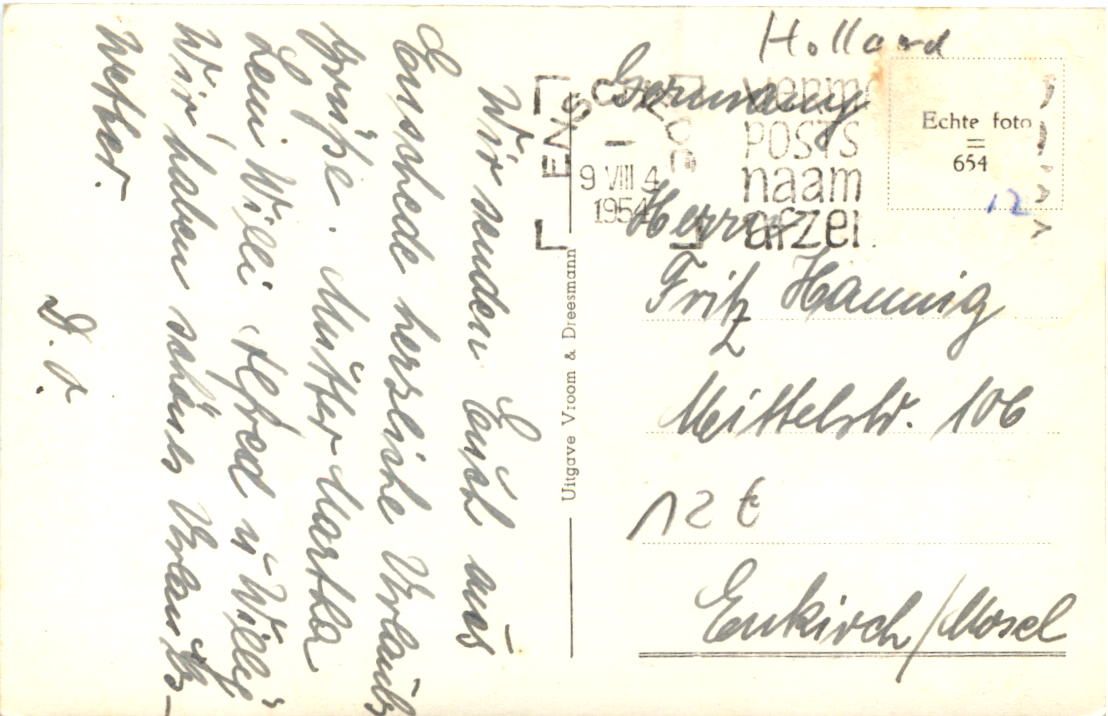 Wir senden Euch aus
Enschede herzliche Urlaubs
Grüße. Mutter Martha
Leni Willi Alfred u Willy
Wir haben schönes Urlaubs-
wetter.
D. O.
Uitgave Vroom & Dreesmann
Holland
Germany
ENSCHEDE
9 VIII 4
1954
POSTS
naam
afzen
Echte foto
=
654
12
Herrn
Fritz Hannig
Mittelstr. 106
12 €
Enkirch/Mosel